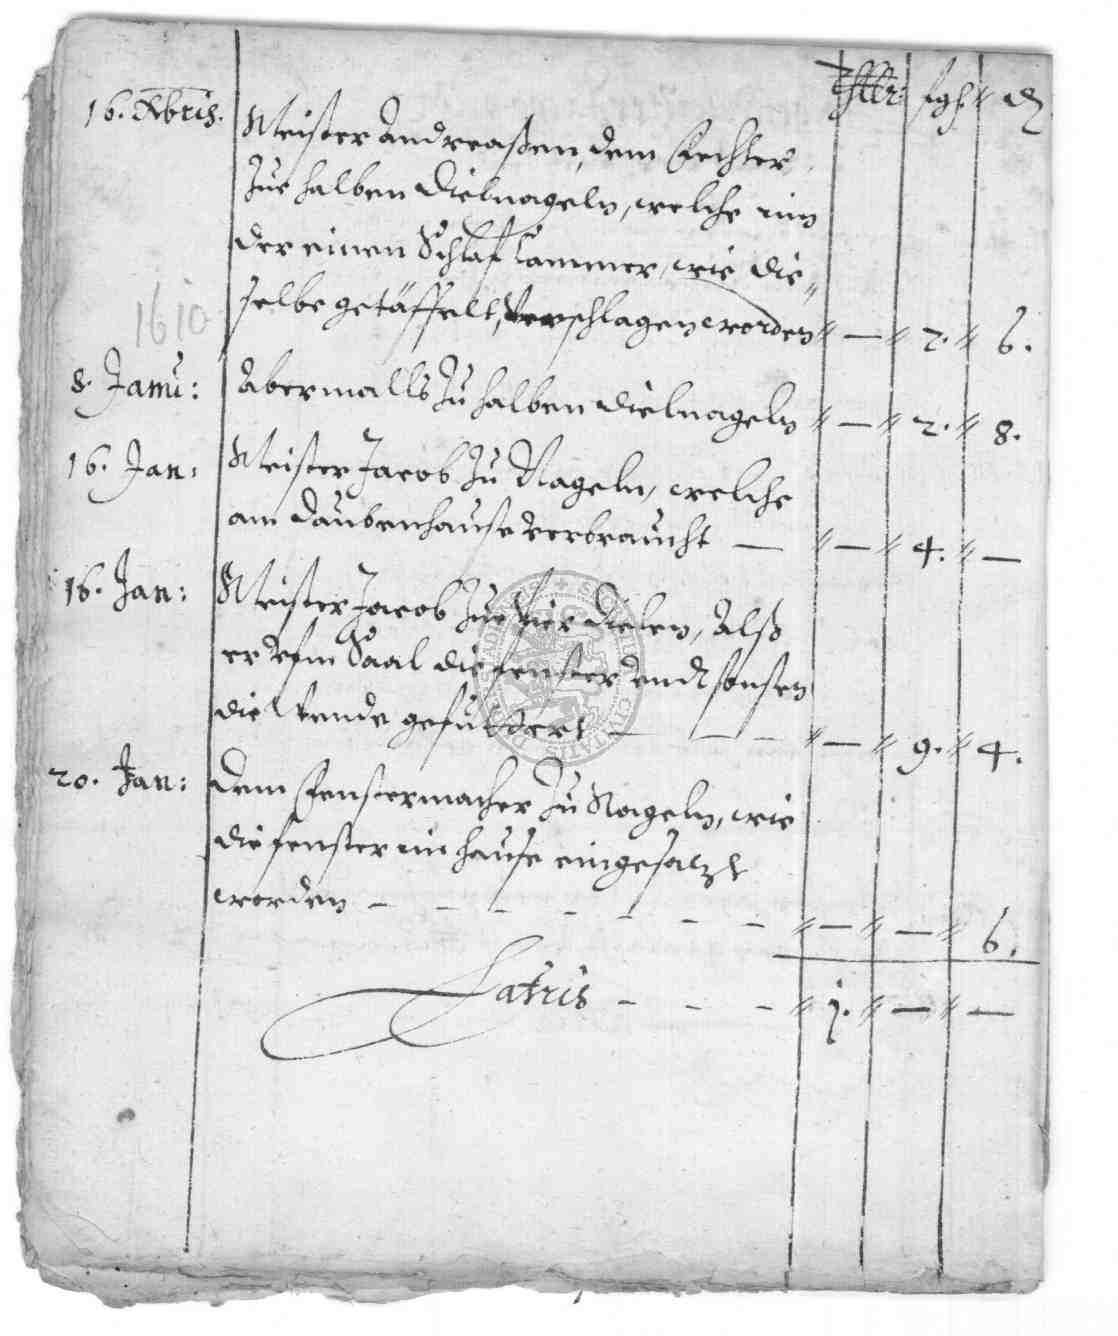 Thlr: sgl. ₰
16. Xbris. Meister Andreaßen, dem Techter
zue halben Dielnageln, welche inn
der einen Schlaf Cammer, wie die„
selbe getäffelt, verschlagen worden „ — „ 2. „ 6.
1610
8. Janu: Abermalls zu halben dielnageln „ — „ 2. „ 8.
16. Jan: Meister Jacob zu Nageln, welche
am Daubenhause verbraucht — „ — „ 4. „ —
16. Jan: Meister Jacob zue vier dielen, Alß
er vfm Saal die fenster vndt sonsten
die Wende gefuttert — — — „ — „ 9. „ 4.
20. Jan: dem Fenstermacher zu Nageln, wie
die fenster im hause eingesatzt
worden — — — — — — — „ — „ — „ 6.
Latris — — — „ 1. „ — „ —